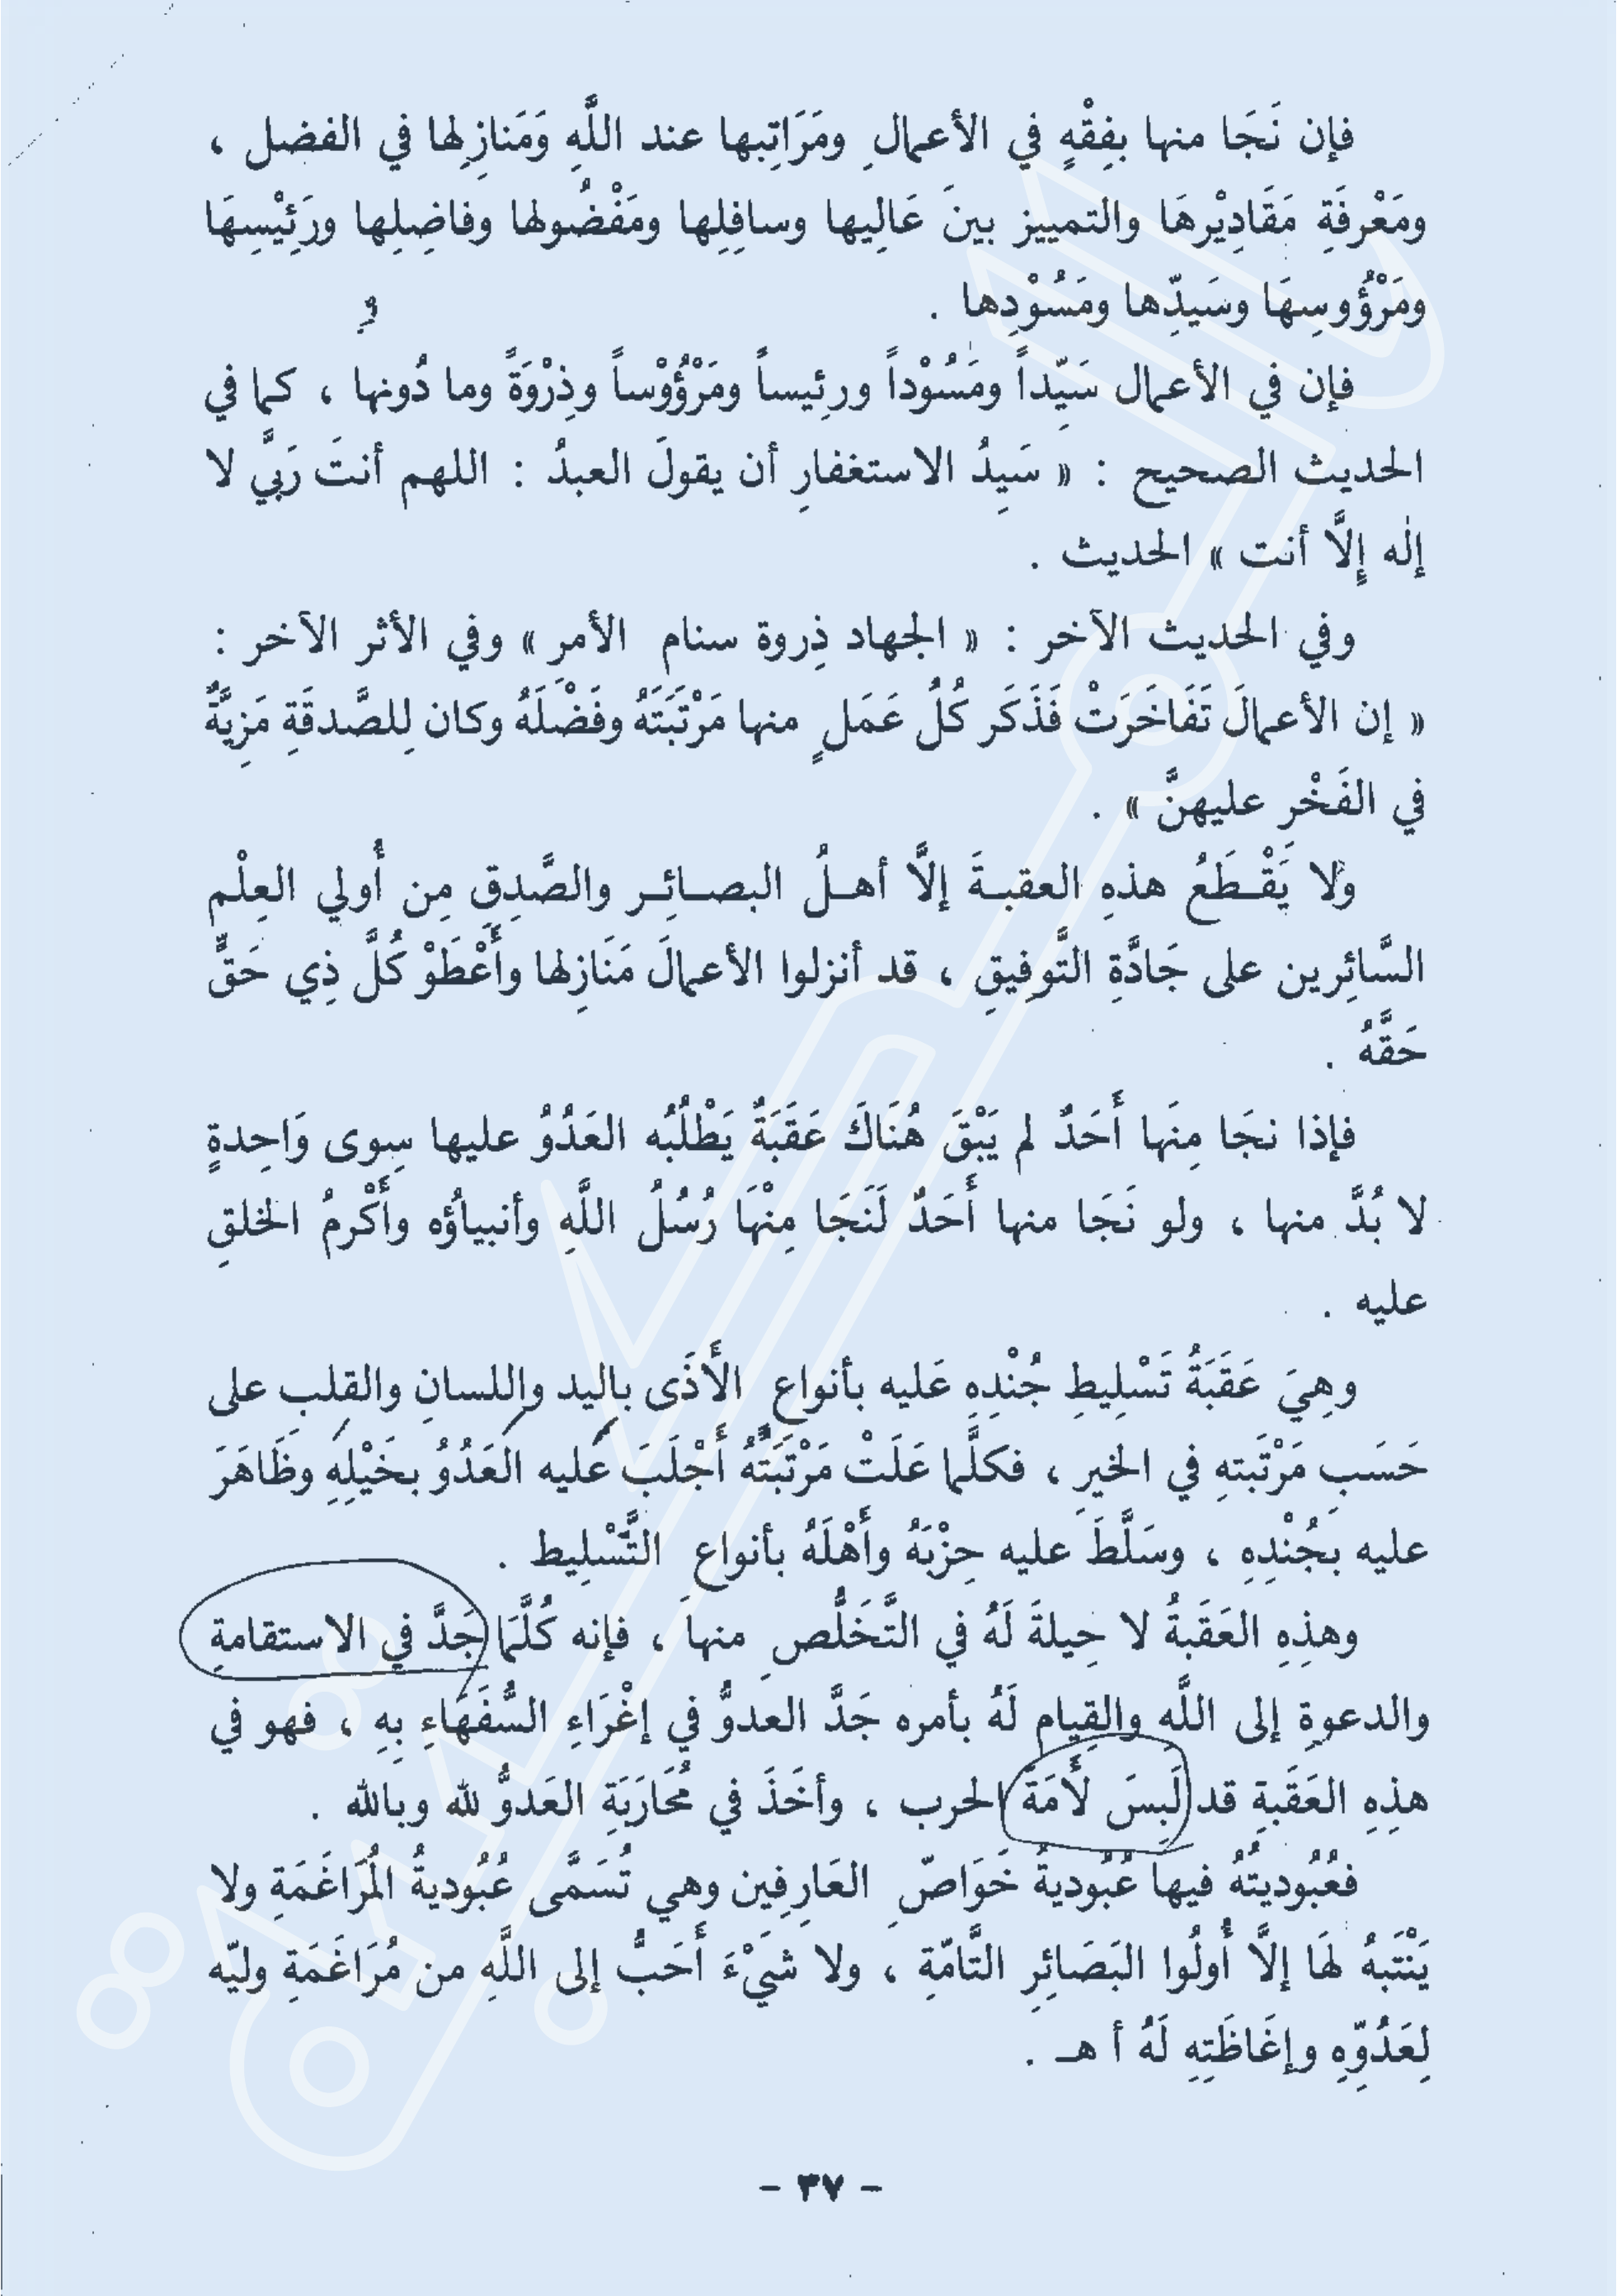 فإن نَجَا منها بفِقْهٍ في الأعمالِ ومَرَاتِبها عند اللَّهِ وَمَنازِلِها في الفضل ،
ومَعْرفَةِ مَقَادِيْرهَا والتمييز بينَ عَالِيها وسافِلِها ومَفْضُولها وفاضِلِها ورَئِيْسِهَا
ومَرْؤُوسِهَا وسَيدِّها ومَسُوْدِها .
فإن في الأعمال سَيِّداً ومَسُوْداً ورئِيساً ومَرْؤُوْساً وذِرْوَةً وما دُونها ، كما في
الحديث الصحيح : « سَيِدُ الاستغفارِ أن يقولَ العبدُ : اللهم أنتَ رَبيَّ لا
إلٰه إِلَّا أنت » الحديث .
وفي الحديث الآخر : « الجهاد ذِروة سنام الأمرِ » وفي الأثر الآخر :
« إن الأعمالَ تَفَاخَرَتْ فَذَكَر كُلُ عَمَلٍ منها مَرْتَبَتَهُ وفَضْلَهُ وكان لِلصَّدقَةِ مَزِيَّةٌ
في الفَخْرِ عليهنَّ » .
ولا يَقْطَعُ هذهِ العقبةَ إلَّا أهلُ البصائِر والصَّدِقِ مِن أُولي العِلْم
السَّائِرين على جَادَّةِ التَّوفِيقِ ، قد أنزلوا الأعمالَ مَنَازِلها وأَعْطَوْ كُلَّ ذِي حَقٍّ
حَقَّهُ .
فإذا نجَا مِنَها أَحَدٌ لم يَبْقَ هُنَاكَ عَقَبَةٌ يَطْلُبُه العَدُوُ عليها سِوى وَاحِدةٍ
لا بُدَّ منها ، ولو نَجَا منها أَحَدٌ لَنَجَا مِنْهَا رُسُلُ اللَّهِ وأنبياؤُه وأَكْرمُ الخلقِ
عليه .
وهِيَ عَقَبَةُ تَسْلِيطِ جُنْدِهِ عَليه بأنواعِ الأَذَى باليد واللسانِ والقلبِ على
حَسَبِ مَرْتَبتهِ في الخيرِ ، فكلَّما عَلَتْ مَرْتَبَتُهُ أَجْلَبَ عليه العَدُوُ بخَيْلِهِ وظَاهَرَ
عليه بجُنْدِهِ ، وسَلَّطَ عليه حِزْبَهُ وأَهْلَهُ بأنواع التَّسْلِيط .
وهذِهِ العَقَبةُ لا حِيلةَ لَهُ في التَّخَلُّصِ منهاَ ، فإنه كُلَّمَا جَدَّ في الاستقامةِ
والدعوةِ إلى اللَّهِ والقِيام لَهُ بأمره جَدَّ العدوُّ في إغْرَاءِ السُّفَهَاءِ بِهِ ، فهو في
هذِهِ العَقَبةِ قد لَبِسَ لأَمَةَ الحرب ، وأخَذَ في مُحَارَبَةِ العَدوُّ لله وبالله .
فعُبُوديتُهُ فيها عُبُوديةُ خَوَاصِّ العَارِفِين وهي تُسَمَّى عُبُوديةُ المُرَاغَمَةِ ولا
يَنْتَبهُ لهَا إلَّا أُولُوا البَصَائِرِ التَّامّةِ ، ولا شَيْءَ أَحَبُّ إلى اللَّهِ من مُرَاغَمَةِ وليّه
لِعَدُوِّهِ وإغَاظَتِهِ لَهُ أ هـ .
- ٣٧ -